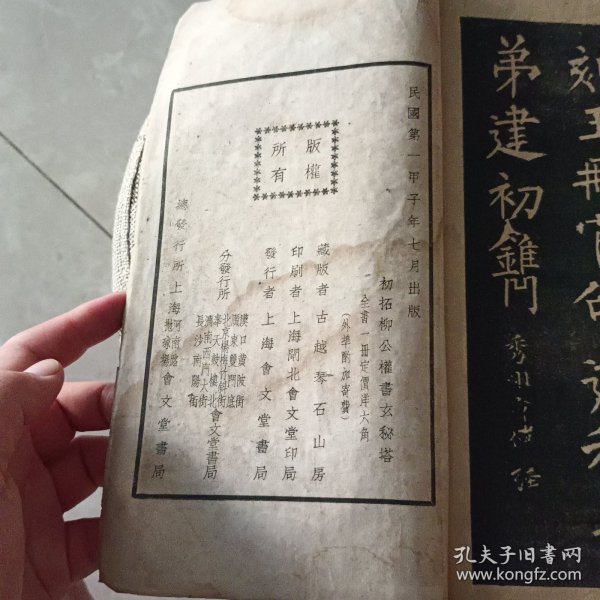 民國第一甲子年七月出版
版權
所有
初拓柳公權書玄秘塔
全書一冊定價洋六角
(外埠酌加寄費)
藏版者古越琴石山房
印刷者上海閘北會文堂印局
發行者上海會文堂書局
分發行所
漢口黃陂街
廣東雙門底
北京楊梅竹斜街
奉天鼓樓北
濟南西門大街
長沙南陽街
會文堂書局
總發行所上海河南路
拋球場
會文堂書局
弟建初鐫
孔夫子旧书网
www.kongfz.com